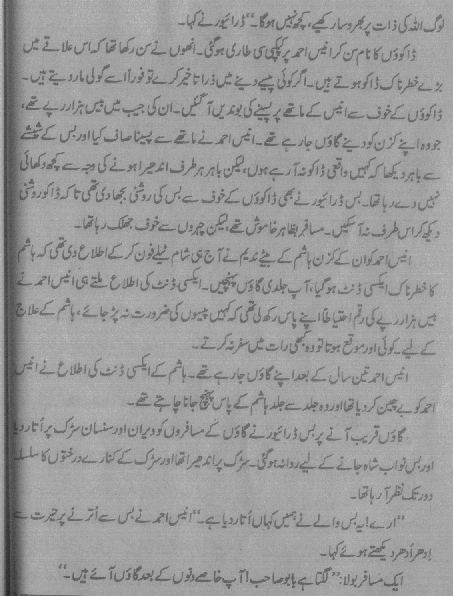 لوگ اللہ کی ذات پر بھروسا رکھیے، کچھ نہیں ہوگا۔“ ڈرائیور نے کہا۔
ڈاکوؤں کا نام سن کر انیس احمد پر کپکپی سی طاری ہوگئی۔ انھوں نے سن رکھا تھا کہ اس علاقے میں
بڑے خطرناک ڈاکو ہوتے ہیں۔ اگر کوئی پیسے دینے میں ذرا تاخیر کرے تو فوراً اسے گولی مار دیتے ہیں۔
ڈاکوؤں کے خوف سے انیس کے ماتھے پر پسینے کی بوندیں آگئیں۔ ان کی جیب میں بیس ہزار رپے تھے،
جو وہ اپنے کزن کو دینے گاؤں جا رہے تھے۔ انیس احمد نے ماتھے سے پسینا صاف کیا اور بس کے شیشے
سے باہر دیکھا کہ کہیں واقعی ڈاکو نہ آ رہے ہوں، لیکن باہر ہر طرف اندھیرا ہونے کی وجہ سے کچھ دکھائی
نہیں دے رہا تھا۔ بس ڈرائیور نے بھی ڈاکوؤں کے خوف سے بس کی روشنی بجھا دی تھی تاکہ ڈاکو روشنی
دیکھ کر اس طرف نہ آسکیں۔ مسافر بظاہر خاموش تھے، لیکن چہروں سے خوف جھلک رہا تھا۔
انیس احمد کو ان کے کزن ہاشم کے بیٹے ندیم نے آج ہی شام ٹیلے فون کر کے اطلاع دی تھی کہ ہاشم
کا خطرناک ایکسی ڈنٹ ہوگیا، آپ جلدی گاؤں پہنچیں۔ ایکسی ڈنٹ کی اطلاع ملتے ہی انیس احمد نے
بیس ہزار رپے کی رقم احتیاطاً اپنے پاس رکھ لی تھی کہ کہیں پیسوں کی ضرورت نہ پڑ جائے، ہاشم کے علاج
کے لیے۔ کوئی اور موقع ہوتا تو وہ کبھی رات میں سفر نہ کرتے۔
انیس احمد تین سال کے بعد اپنے گاؤں جا رہے تھے۔ ہاشم کے ایکسی ڈنٹ کی اطلاع نے انیس
احمد کو بے چین کر دیا تھا اور وہ جلد سے جلد ہاشم کے پاس پہنچ جانا چاہتے تھے۔
گاؤں قریب آنے پر بس ڈرائیور نے گاؤں کے مسافروں کو ویران اور سنسان سڑک پر اُتار دیا
اور بس نواب شاہ جانے کے لیے روانہ ہوگئی۔ سڑک پر اندھیرا تھا اور سڑک کے کنارے درختوں کا سلسلہ
دور تک نظر آ رہا تھا۔
”ارے! یہ بس والے نے ہمیں کہاں اُتار دیا ہے۔“ انیس احمد نے بس سے اُترنے پر حیرت سے
اِدھر اُدھر دیکھتے ہوئے کہا۔
ایک مسافر بولا: ”لگتا ہے بابو صاحب! آپ خاصے دنوں کے بعد گاؤں آئے ہیں۔“